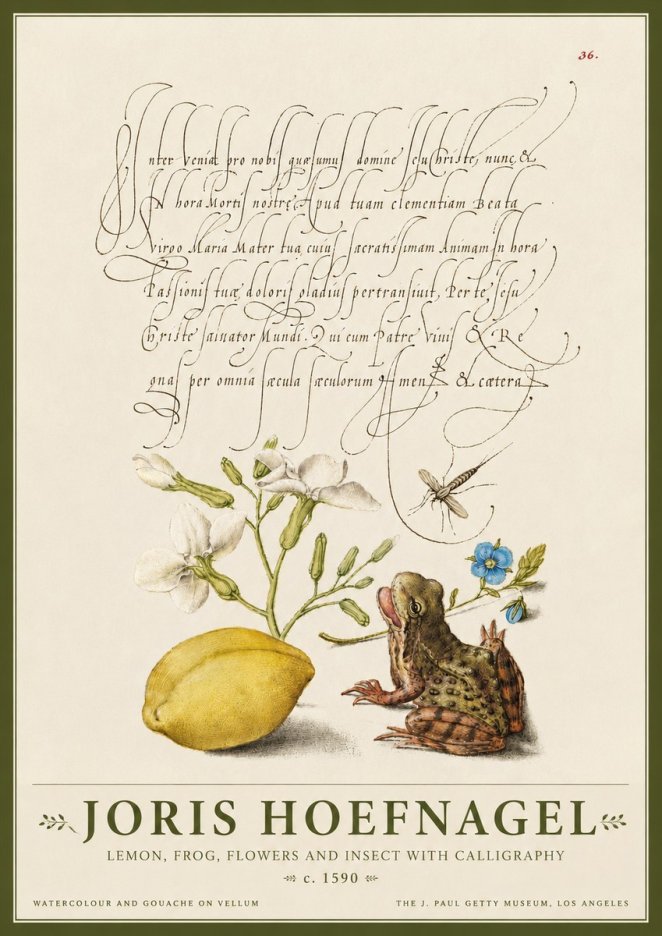 36.
Inter Veniat pro nobis quæsumus domine Jesu Christe, nunc, &
In hora Mortis nostre, Apud tuam clementiam Beata
Virgo Maria Mater tua, cuius sacratissimam Animam In hora
Passionis tuæ doloris gladius pertransiuit, Per te, Jesu
Christe saluator Mundi. Qui cum Patre viuis & Re
gnas per omnia sæcula sæculorum Amen & cætera
JORIS HOEFNAGEL
LEMON, FROG, FLOWERS AND INSECT WITH CALLIGRAPHY
c. 1590
WATERCOLOUR AND GOUACHE ON VELLUM
THE J. PAUL GETTY MUSEUM, LOS ANGELES